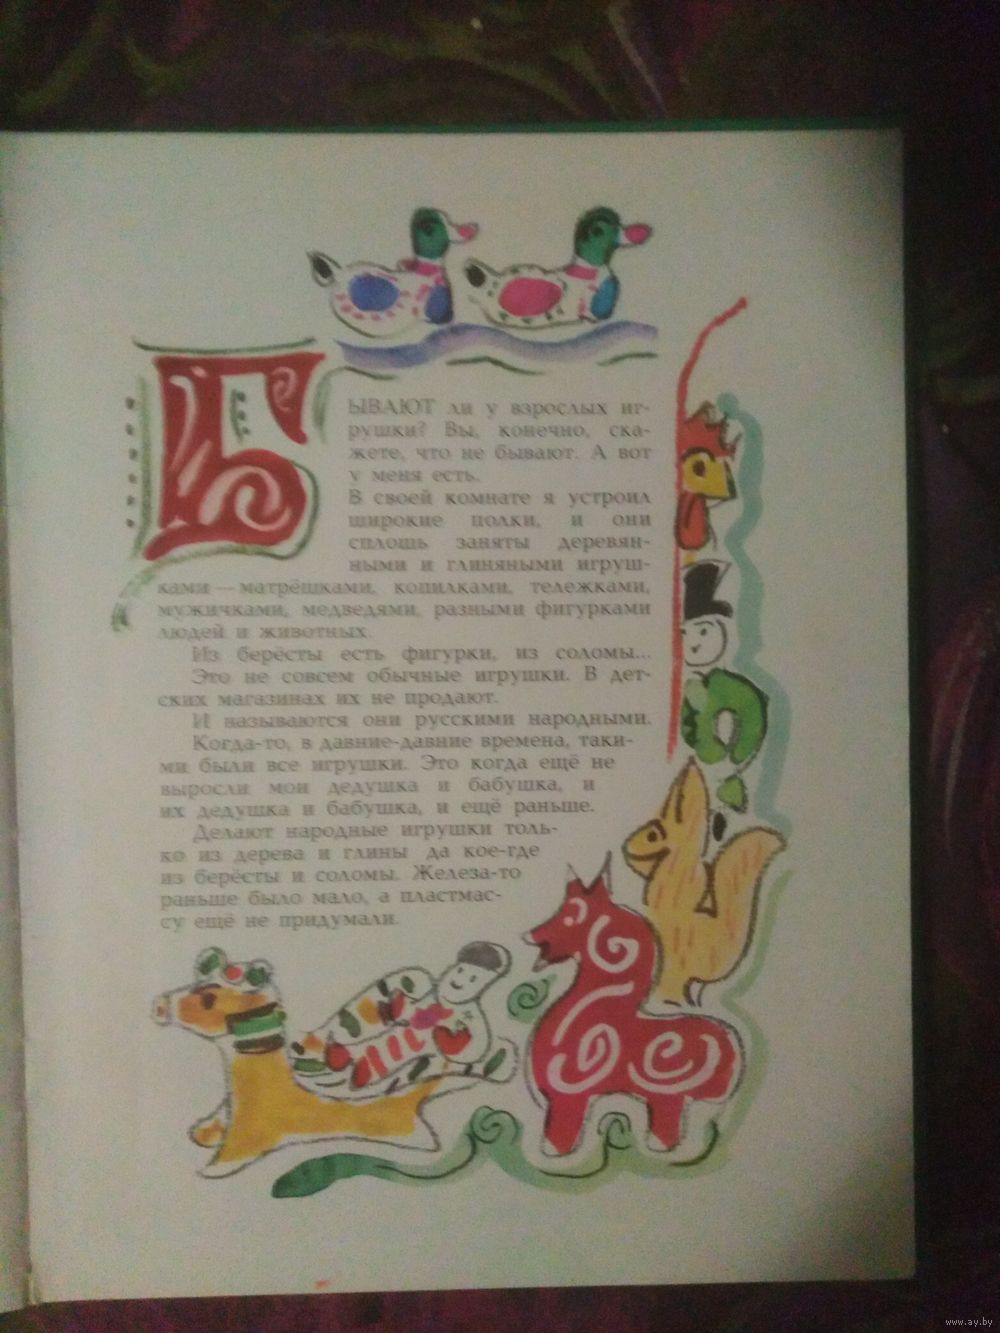 БЫВАЮТ ли у взрослых иг-
рушки? Вы, конечно, ска-
жете, что не бывают. А вот
у меня есть.
В своей комнате я устроил
широкие полки, и они
сплошь заняты деревян-
ными и глиняными игруш-
ками — матрёшками, копилками, тележками,
мужичками, медведями, разными фигурками
людей и животных.
Из берёсты есть фигурки, из соломы...
Это не совсем обычные игрушки. В дет-
ских магазинах их не продают.
И называются они русскими народными.
Когда-то, в давние-давние времена, таки-
ми были все игрушки. Это когда ещё не
выросли мои дедушка и бабушка, и
их дедушка и бабушка, и ещё раньше.
Делают народные игрушки толь-
ко из дерева и глины да кое-где
из берёсты и соломы. Железа-то
раньше было мало, а пластмас-
су ещё не придумали.
www.ay.by